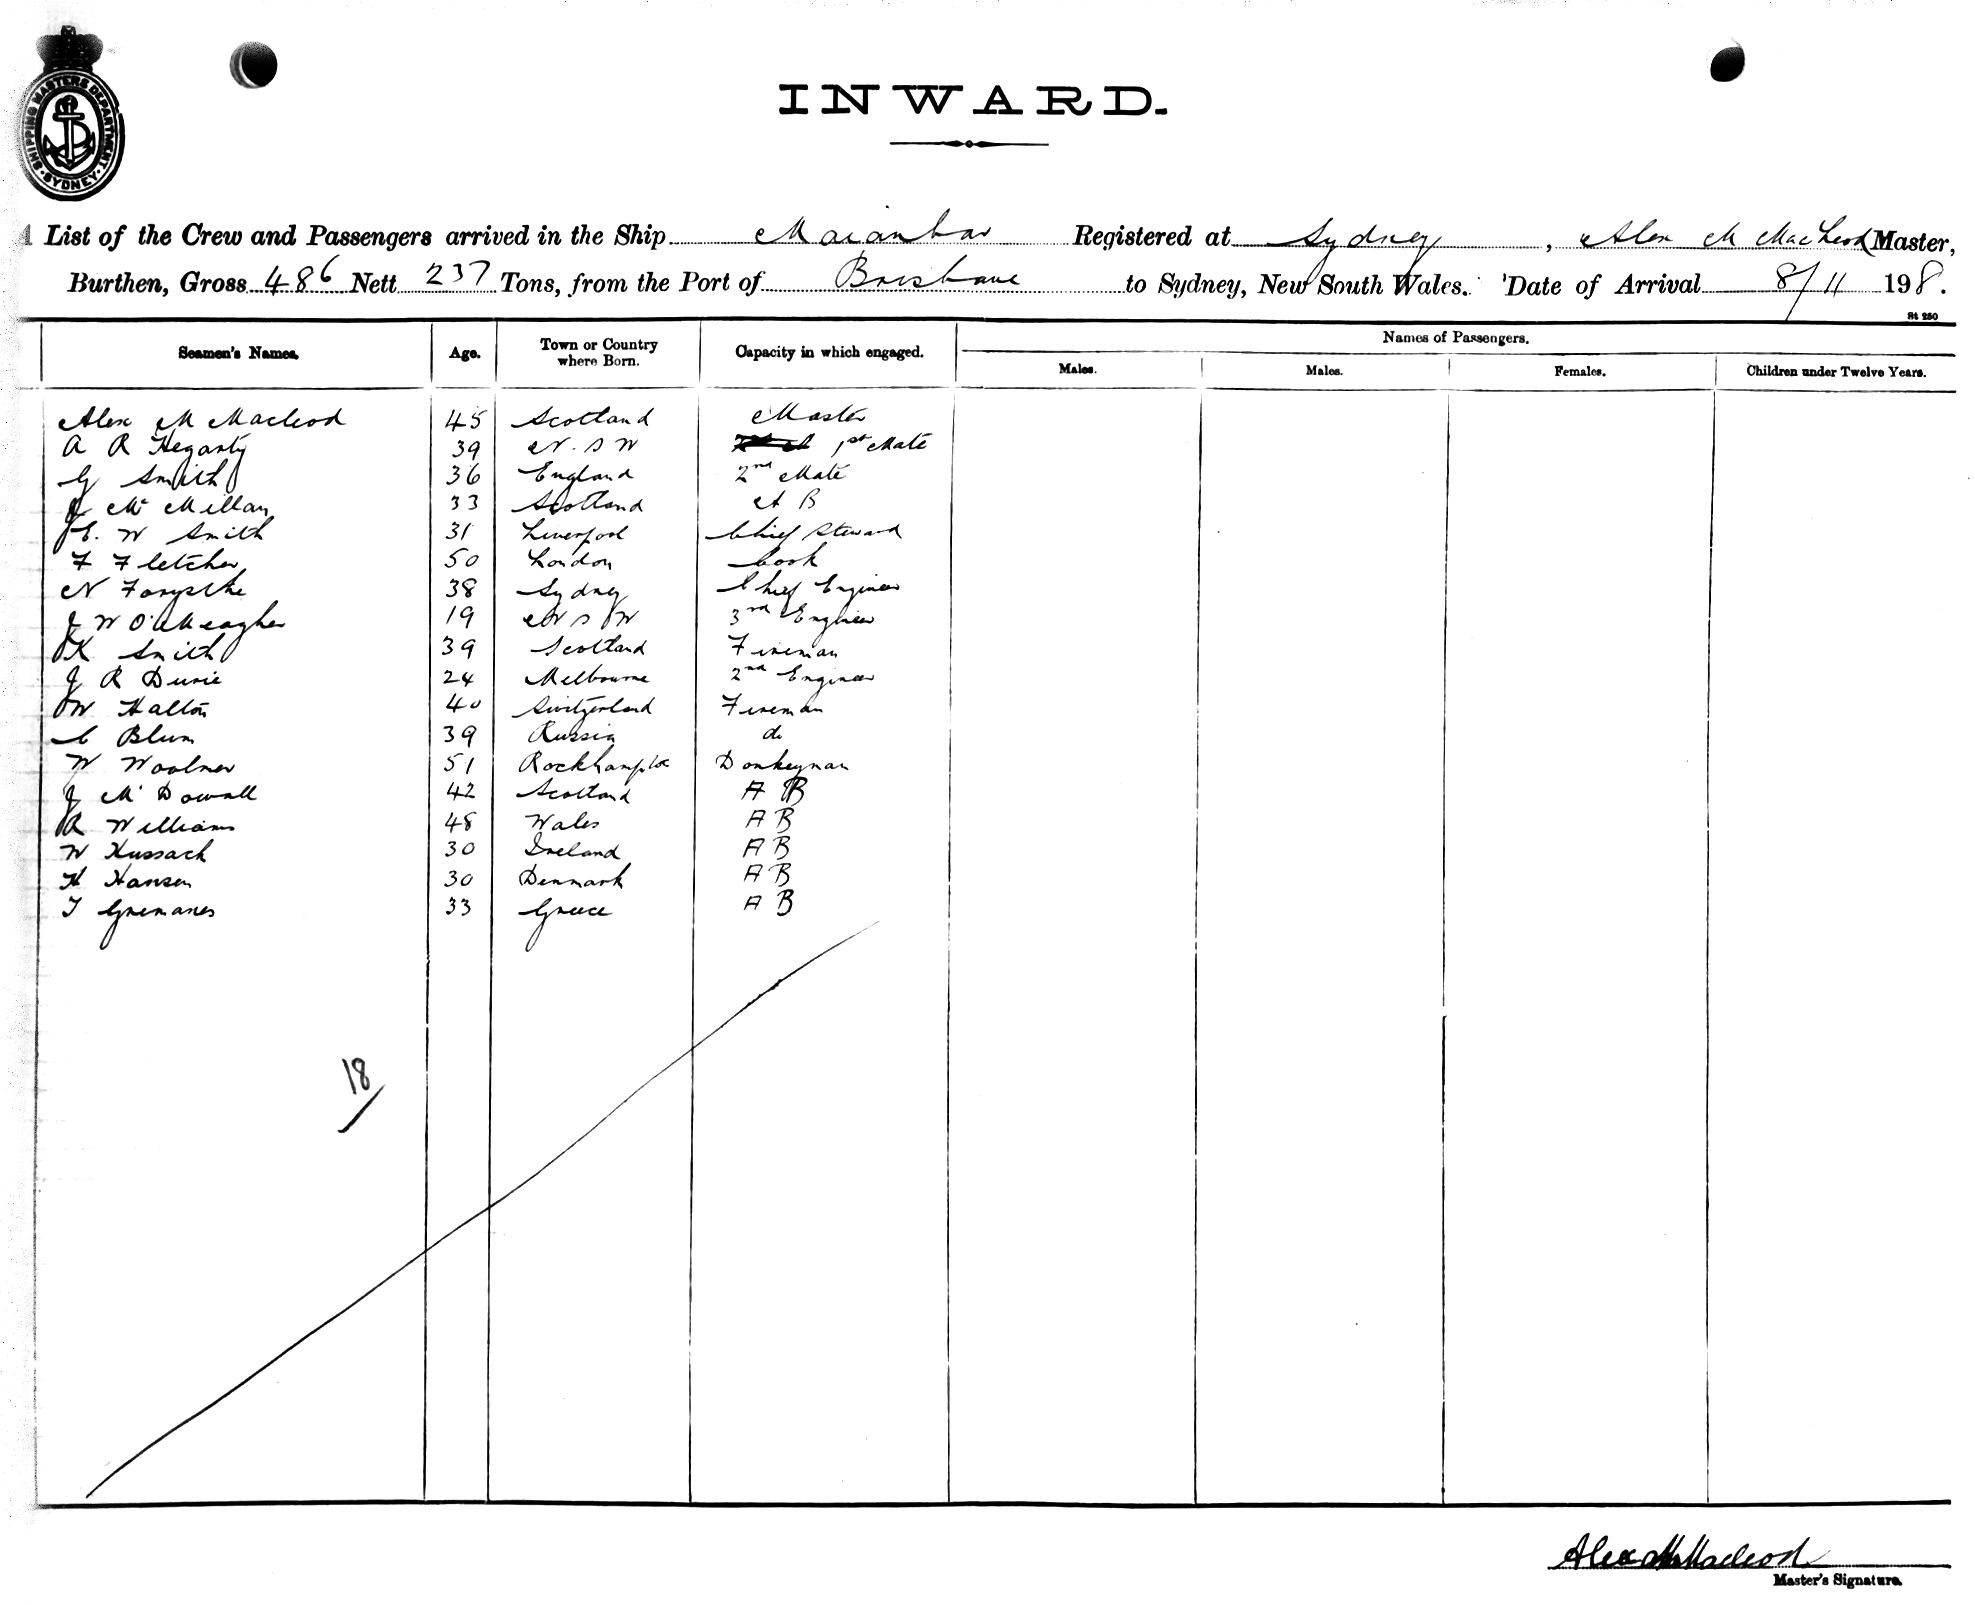 SHIPPING MASTERS DEPARTMENT
SYDNEY
INWARD.
A List of the Crew and Passengers arrived in the Ship Maianbar Registered at Sydney, Alex M MacLeod Master,
Burthen, Gross 486 Nett 237 Tons, from the Port of Brisbane to Sydney, New South Wales. Date of Arrival 8/11 198.
St 250
Seamen's Names. Age. Town or Country where Born. Capacity in which engaged. Names of Passengers.
Males. Males. Females. Children under Twelve Years.
Alex M Macleod 45 Scotland Master
A R Hegarty 39 N. S W 1st Mate
G Smith 36 England 2nd Mate
J Mc Millan 33 Scotland A B
E. W Smith 31 Liverpool Chief Steward
F Fletcher 50 London Cook
N Forsythe 38 Sydney Chief Engineer
J W O'Meagher 19 N S W 3rd Engineer
K Smith 39 Scotland Fireman
J R Durie 24 Melbourne 2nd Engineer
W Halton 40 Switzerland Fireman
C Blum 39 Russia do
W Woolner 51 Rockhampton Donkeyman
J Mc Dowall 42 Scotland A B
R Williams 48 Wales A B
W Kussack 30 Ireland A B
H Hansen 30 Denmark A B
T Gremanes 33 Greece A B
18
Alex M Macleod
Master's Signature.